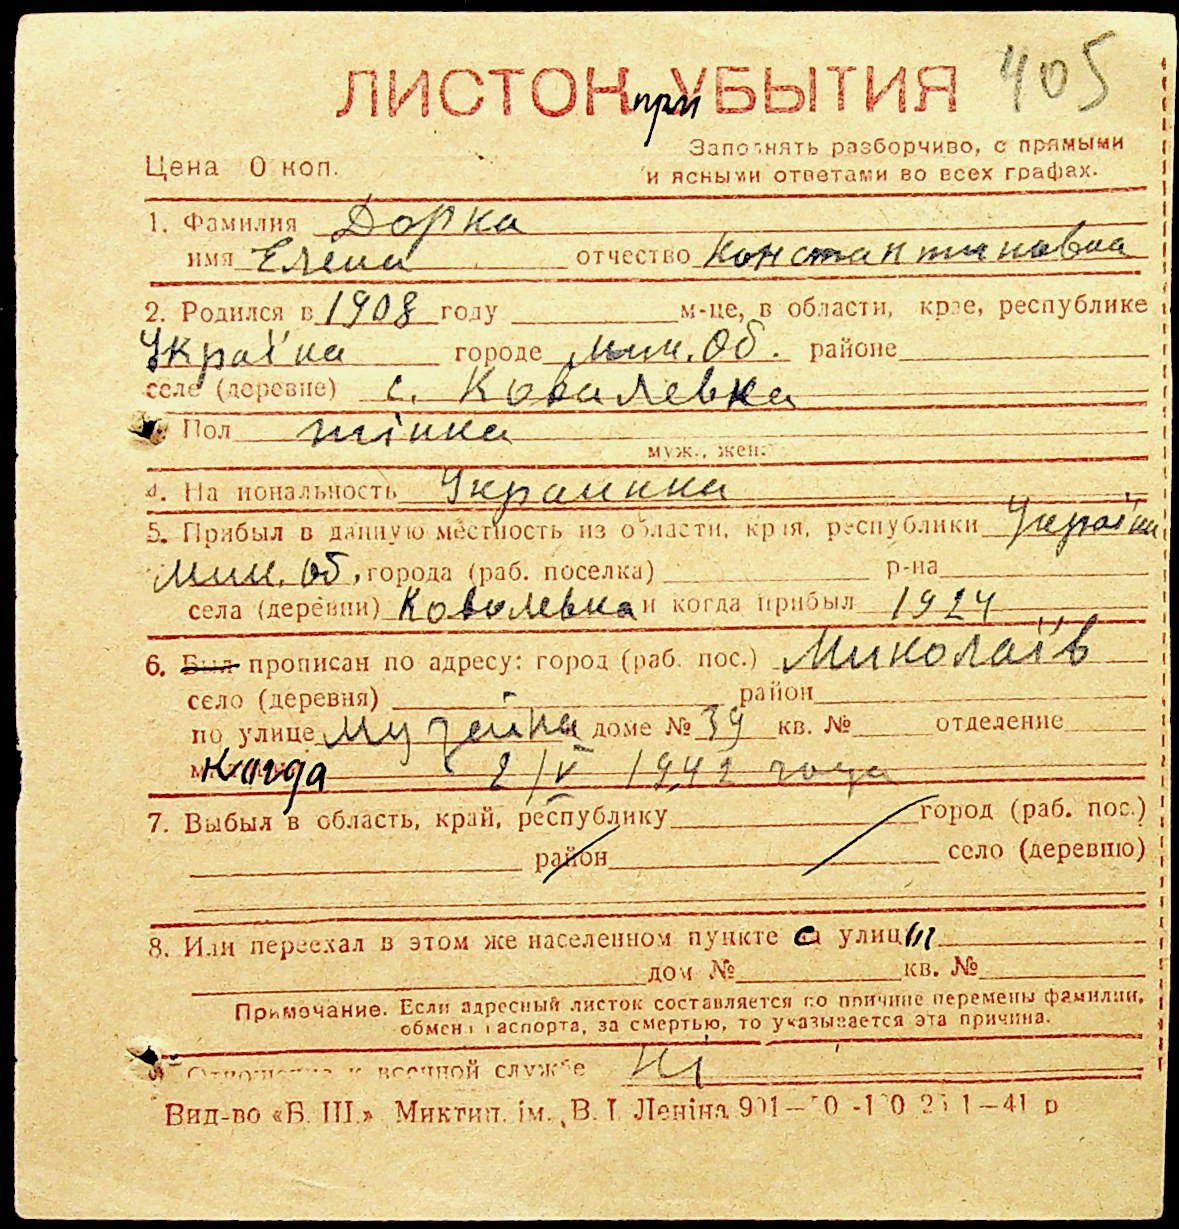 405
ЛИСТОК при УБЫТИЯ
Заполнять разборчиво, с прямыми
Цена 0 коп.
и ясными ответами во всех графах.
1. Фамилия Дорка
имя Елена отчество Константиновна
2. Родился в 1908 году м-це, в области, крае, республике
Україна городе Мик. Об. районе
селе (деревне) с. Ковалевка
Пол жінка
муж., жен.
4. Национальность Украинка
5. Прибыл в данную местность из области, края, республики Україна
Мик. Об. города (раб. поселка) р-на
села (деревни) Ковалевка и когда прибыл 1924
6. Был прописан по адресу: город (раб. пос.) Миколаїв
село (деревня) район
по улице доме № 39 кв. № отделение
Когда 2/V 1942 года
7. Выбыл в область, край, республику город (раб. пос.)
район село (деревню)
8. Или переехал в этом же населенном пункте с улицы
дом № кв. №
Примечание. Если адресный листок составляется по причине перемены фамилии,
обмена паспорта, за смертью, то указывается эта причина.
Отношение к военной службе Ні
Вид-во «Б. Ш.» Миктип. ім. В. І. Леніна